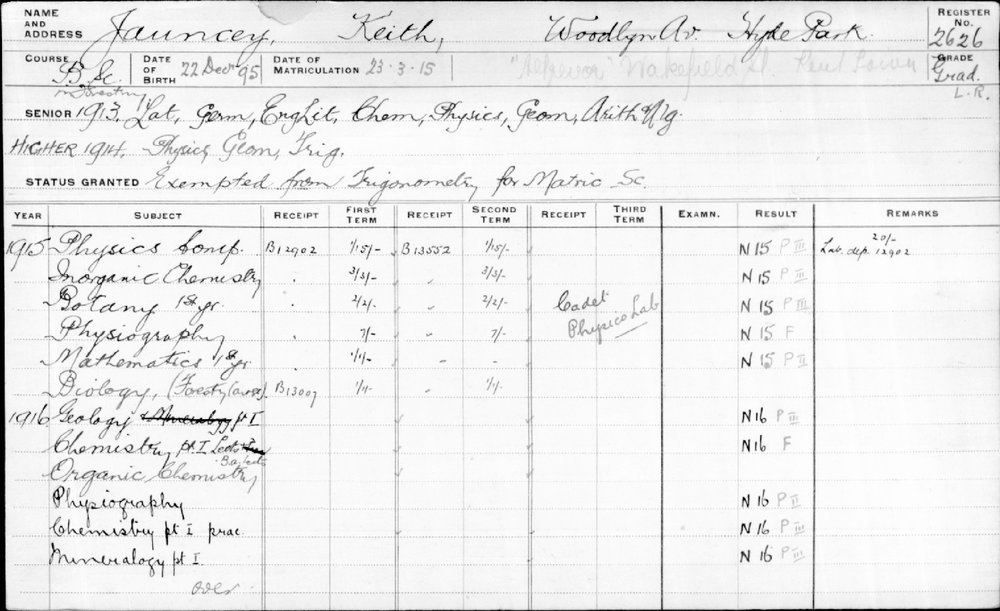 NAME AND ADDRESS Jauncey, Keith, Woodlyn Av. Hyde Park. REGISTER No. 2626
COURSE B.Sc. in Forestry DATE OF BIRTH 22 Decr 95 DATE OF MATRICULATION 23.3.15 Wakefield St. Kent Town GRADE Grad.
L.R.
SENIOR 1913. Lat, Germ, Eng Lit, Chem, Physics, Geom, Arith Alg.
HIGHER 1914. Physics, Geom, Trig.
STATUS GRANTED Exempted from Trigonometry for Matric Sc.
YEAR SUBJECT RECEIPT FIRST TERM RECEIPT SECOND TERM RECEIPT THIRD TERM EXAMN. RESULT REMARKS
1915 Physics Comp. B12902 1/15/- B13552 1/15/- N 15 P III Lab. dep. 20/- 12902
Inorganic Chemistry 3/3/- 3/3/- N 15 P II
Botany 1st yr. 2/2/- 2/2/- Cadet N 15 P III
Physiography 7/- 7/- Physics Lab N 15 F
Mathematics 1st yr. 1/1/- N 15 P II
Biology, (Forestry Course) B13007 1/1/- 1/1/-
1916 Geology & Mineralogy pt I N 16 P III
Chemistry pt I Lects N 16 F
Organic Chemistry
Physiography N 16 P II
Chemistry pt I prac. N 16 P III
Mineralogy pt I. N 16 P III
over